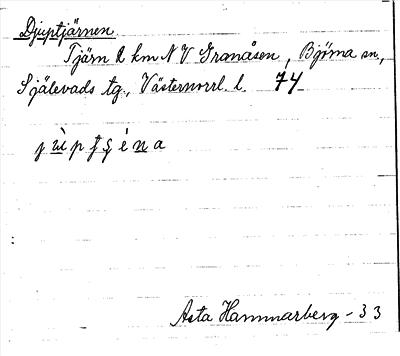 Djuptjärnen
Tjärn 2 km N V Granåsen, Björna sn,
Själevads tg., Västernorrl. l. 74
j ù p t ʂ é n a
Asta Hammarberg - 33